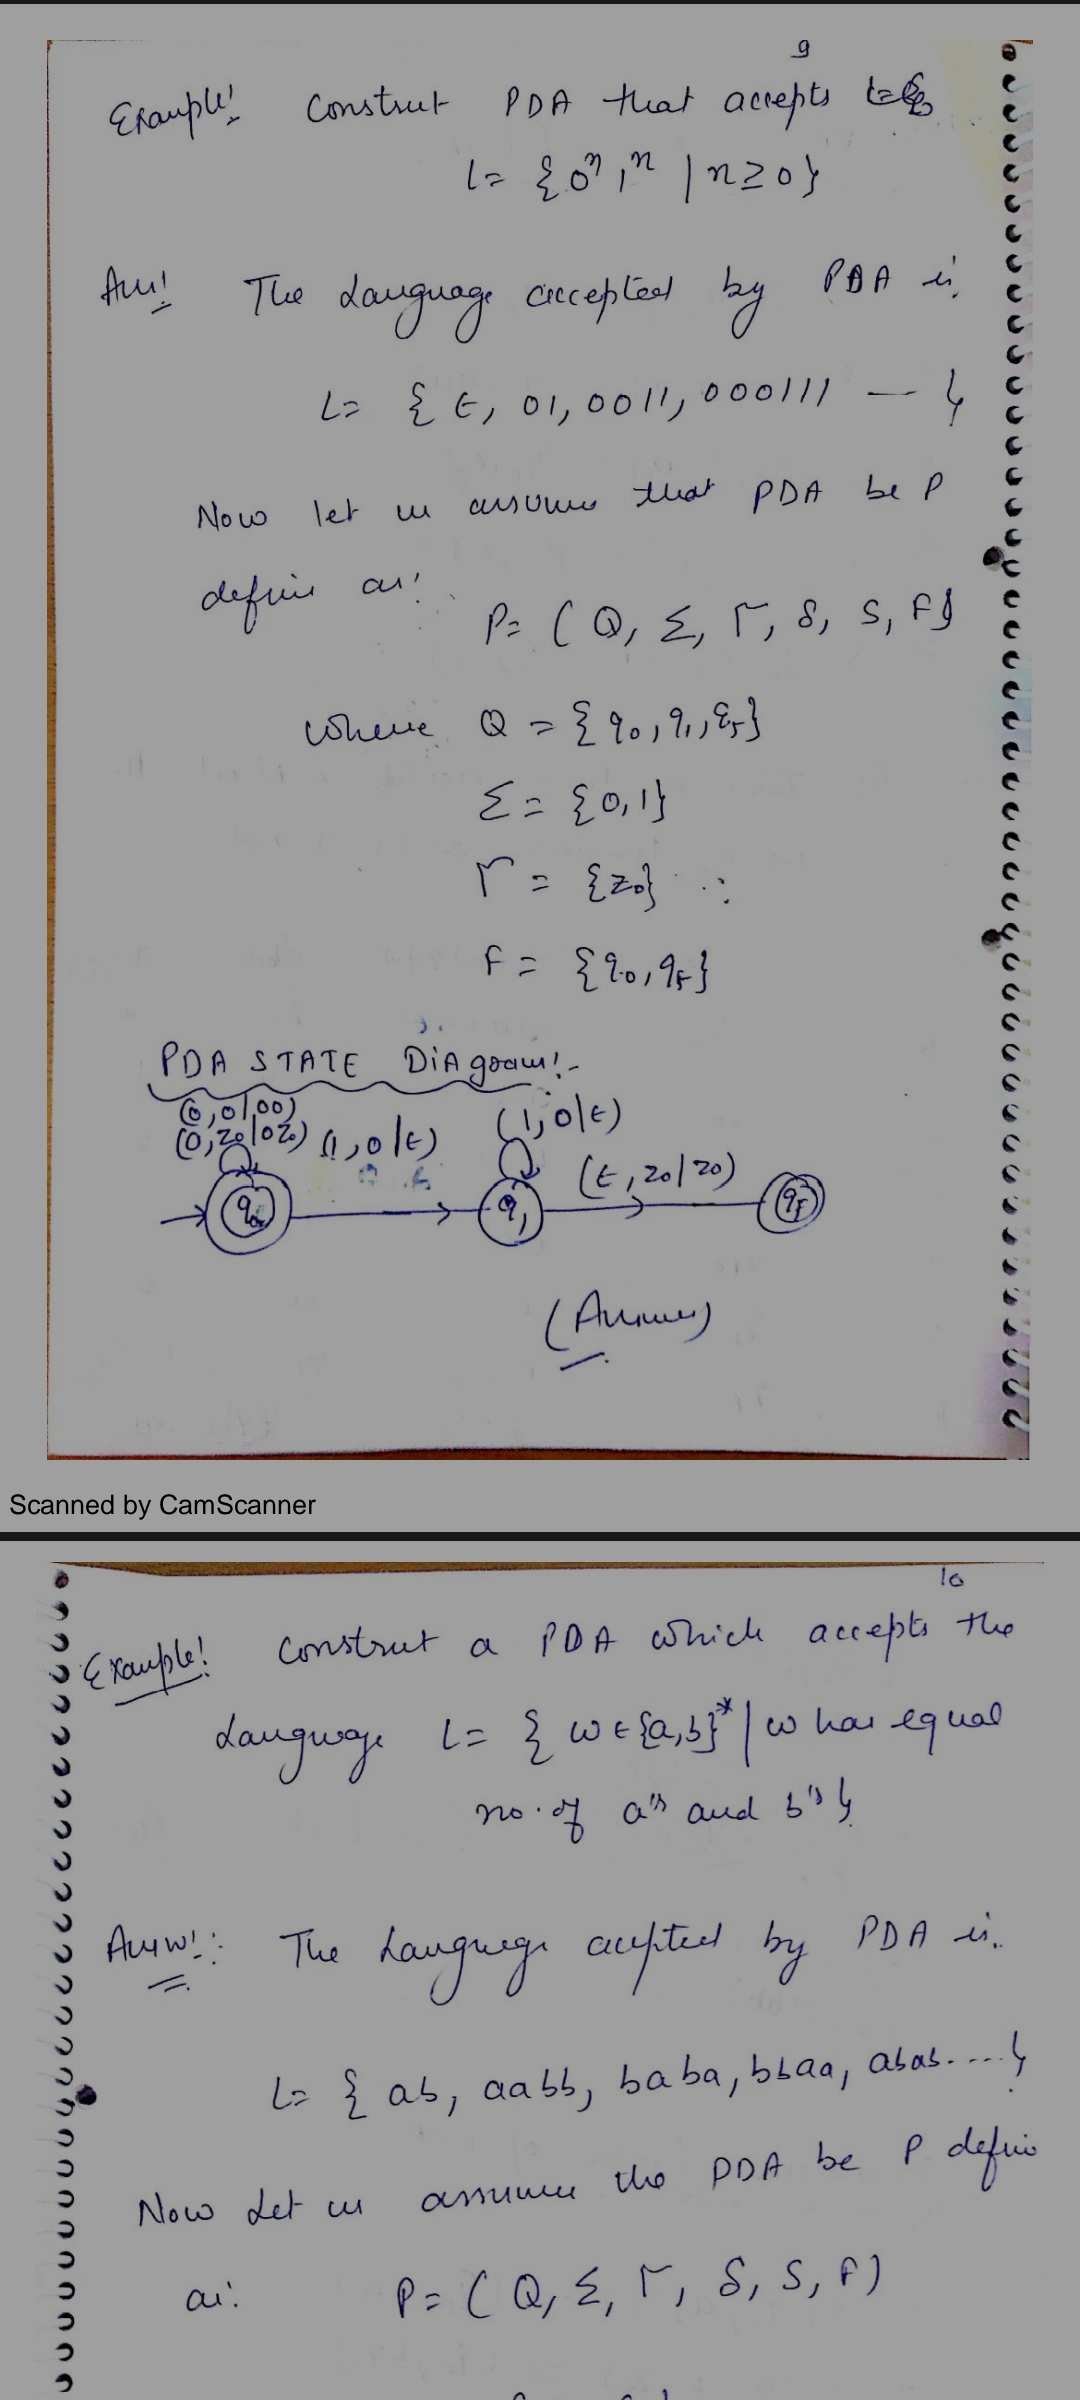 9
Example! Construct PDA that accepts
L= {0ⁿ1ⁿ | n≥0}
Ans! The Language accepted by PDA is.
L= {ε, 01, 0011, 000111 — }
Now let us assume that PDA be P
define as!
P= (Q, Σ, Γ, δ, S, F}
where Q = {q0, q1, qF}
Σ = {0,1}
Γ = {z0}
F = {q0, qF}
PDA STATE DiAgram!-
(0,0/00)
(0,z0/0z0) (1,0/ε) (1,0/ε)
(ε, z0/z0)
q0 q1 qF
(Answer)
Scanned by CamScanner
10
Example! Construct a PDA which accepts the
Language L= { w ∈ {a,b}* | w has equal
no. of a's and b's }
Answ!: The Language accepted by PDA is..
L= { ab, aabb, baba, bbaa, abab.... }
Now Let us assume the PDA be P define
as: P= (Q, Σ, Γ, δ, S, F)